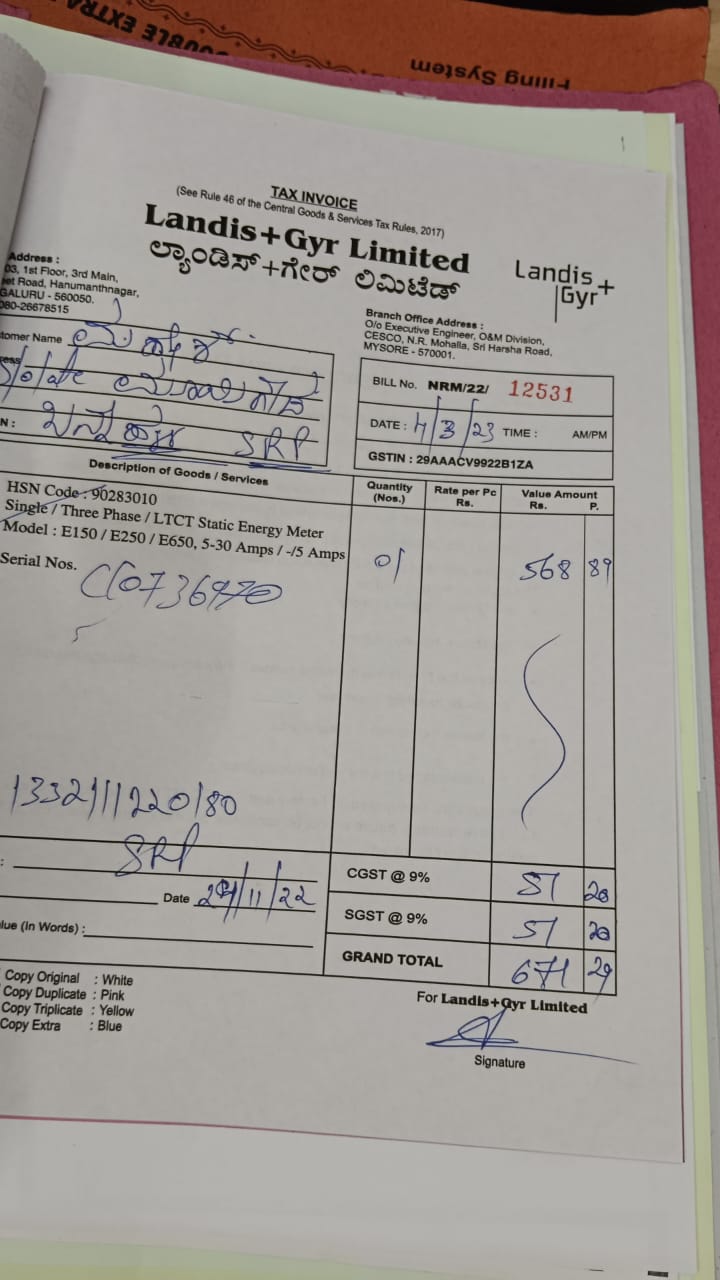 DOUBLE EXTRA
Filing System
TAX INVOICE
(See Rule 46 of the Central Goods & Services Tax Rules, 2017)
Landis+Gyr Limited
ಲ್ಯಾಂಡಿಸ್+ಗೇರ್ ಲಿಮಿಟೆಡ್
Landis+
Gyr
Address :
03, 1st Floor, 3rd Main,
et Road, Hanumanthnagar,
GALURU - 560050.
080-26678515
Branch Office Address :
O/o Executive Engineer, O&M Division,
CESCO, N.R. Mohalla, Sri Harsha Road,
MYSORE - 570001.
tomer Name
ress S/o late
N : SRP
BILL No. NRM/22/ 12531
DATE : 4/3/23 TIME : AM/PM
GSTIN : 29AAACV9922B1ZA
Description of Goods / Services
Quantity (Nos.)
Rate per Pc Rs.
Value Amount Rs. P.
HSN Code : 90283010
Single / Three Phase / LTCT Static Energy Meter
Model : E150 / E250 / E650, 5-30 Amps / -/5 Amps
01 568 89
Serial Nos.
1332111220180
SRP
Date 24/11/22
lue (In Words) :
CGST @ 9% 51 20
SGST @ 9% 51 20
GRAND TOTAL 671 29
Copy Original : White
Copy Duplicate : Pink
Copy Triplicate : Yellow
Copy Extra : Blue
For Landis+Gyr Limited
Signature